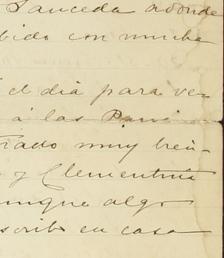 Sauceda adonde
bido con mucha
el dia para ve
á las
rado muy
y Clementina
unque algo
scribo en casa